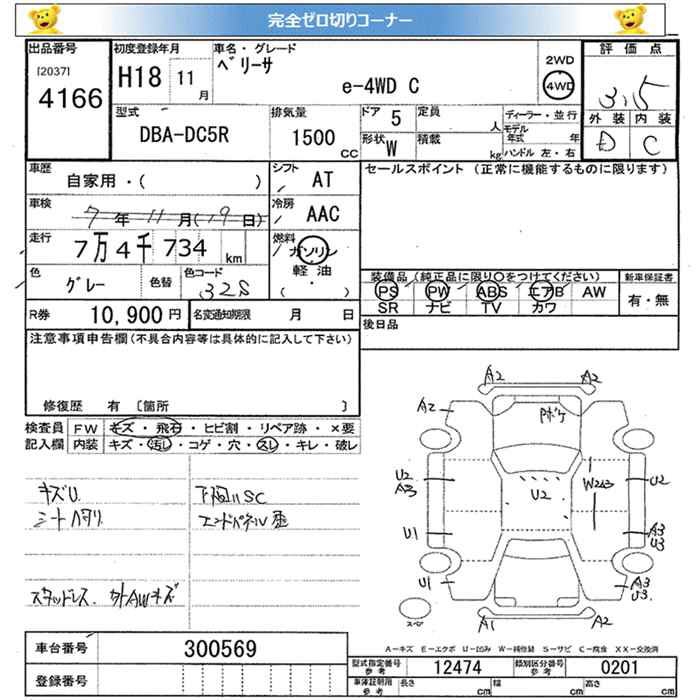 完全ゼロ切りコーナー
出品番号 初度登録年月 車名・グレード 評価点
[2037] 4166 H18 11月 ベリーサ 2WD
e-4WD C 4WD 3.5
型式 排気量 ドア 5 定員 人 ディーラー・並行 外装 内装
DBA-DC5R 1500 CC 形状 W 積載 kg モデル年式 年 D C
ハンドル 左・右
車歴 自家用・( ) シフト AT セールスポイント (正常に機能するものに限ります)
車検 7年11月(19日) 冷房 AAC
走行 7万4千734 km 燃料 ガソリン 軽油 ・ ( )
色 グレー 色替 色コード 32S 装備品(純正品に限り〇をつけてください) 新車保証書
PS PW ABS エアB AW 有・無
SR ナビ TV カワ
R券 10,900円 名変通知期限 月 日 後日品
注意事項申告欄(不具合内容等は具体的に記入して下さい)
修復歴 有 〔箇所 〕
検査員記入欄 FW キズ・飛石・ヒビ割・リペア跡・×要
内装 キズ・汚レ・コゲ・穴・スレ・キレ・破レ
キズU 下廻りSC
シートヘタリ エンドパネル歪
スタッドレス. 外AWキズ
A2 A2
A2 Pボケ
U2 A3 U2 W2 U2
U1 A3 U3
U1 A3 U3.
スペア A1 A2
A-キズ E-エクボ U-凹み W-補修跡 S-サビ C-腐食 XX-交換済
車台番号 300569
登録番号
型式指定番号 参考 12474 類別区分番号 参考 0201
車庫証明用 参考 長さ cm 幅 cm 高さ cm